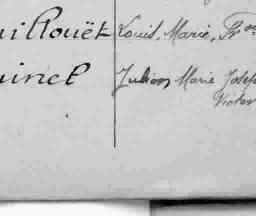 uillouët Louis, Marie, Fr
uinel Julien Marie Josep
Victor